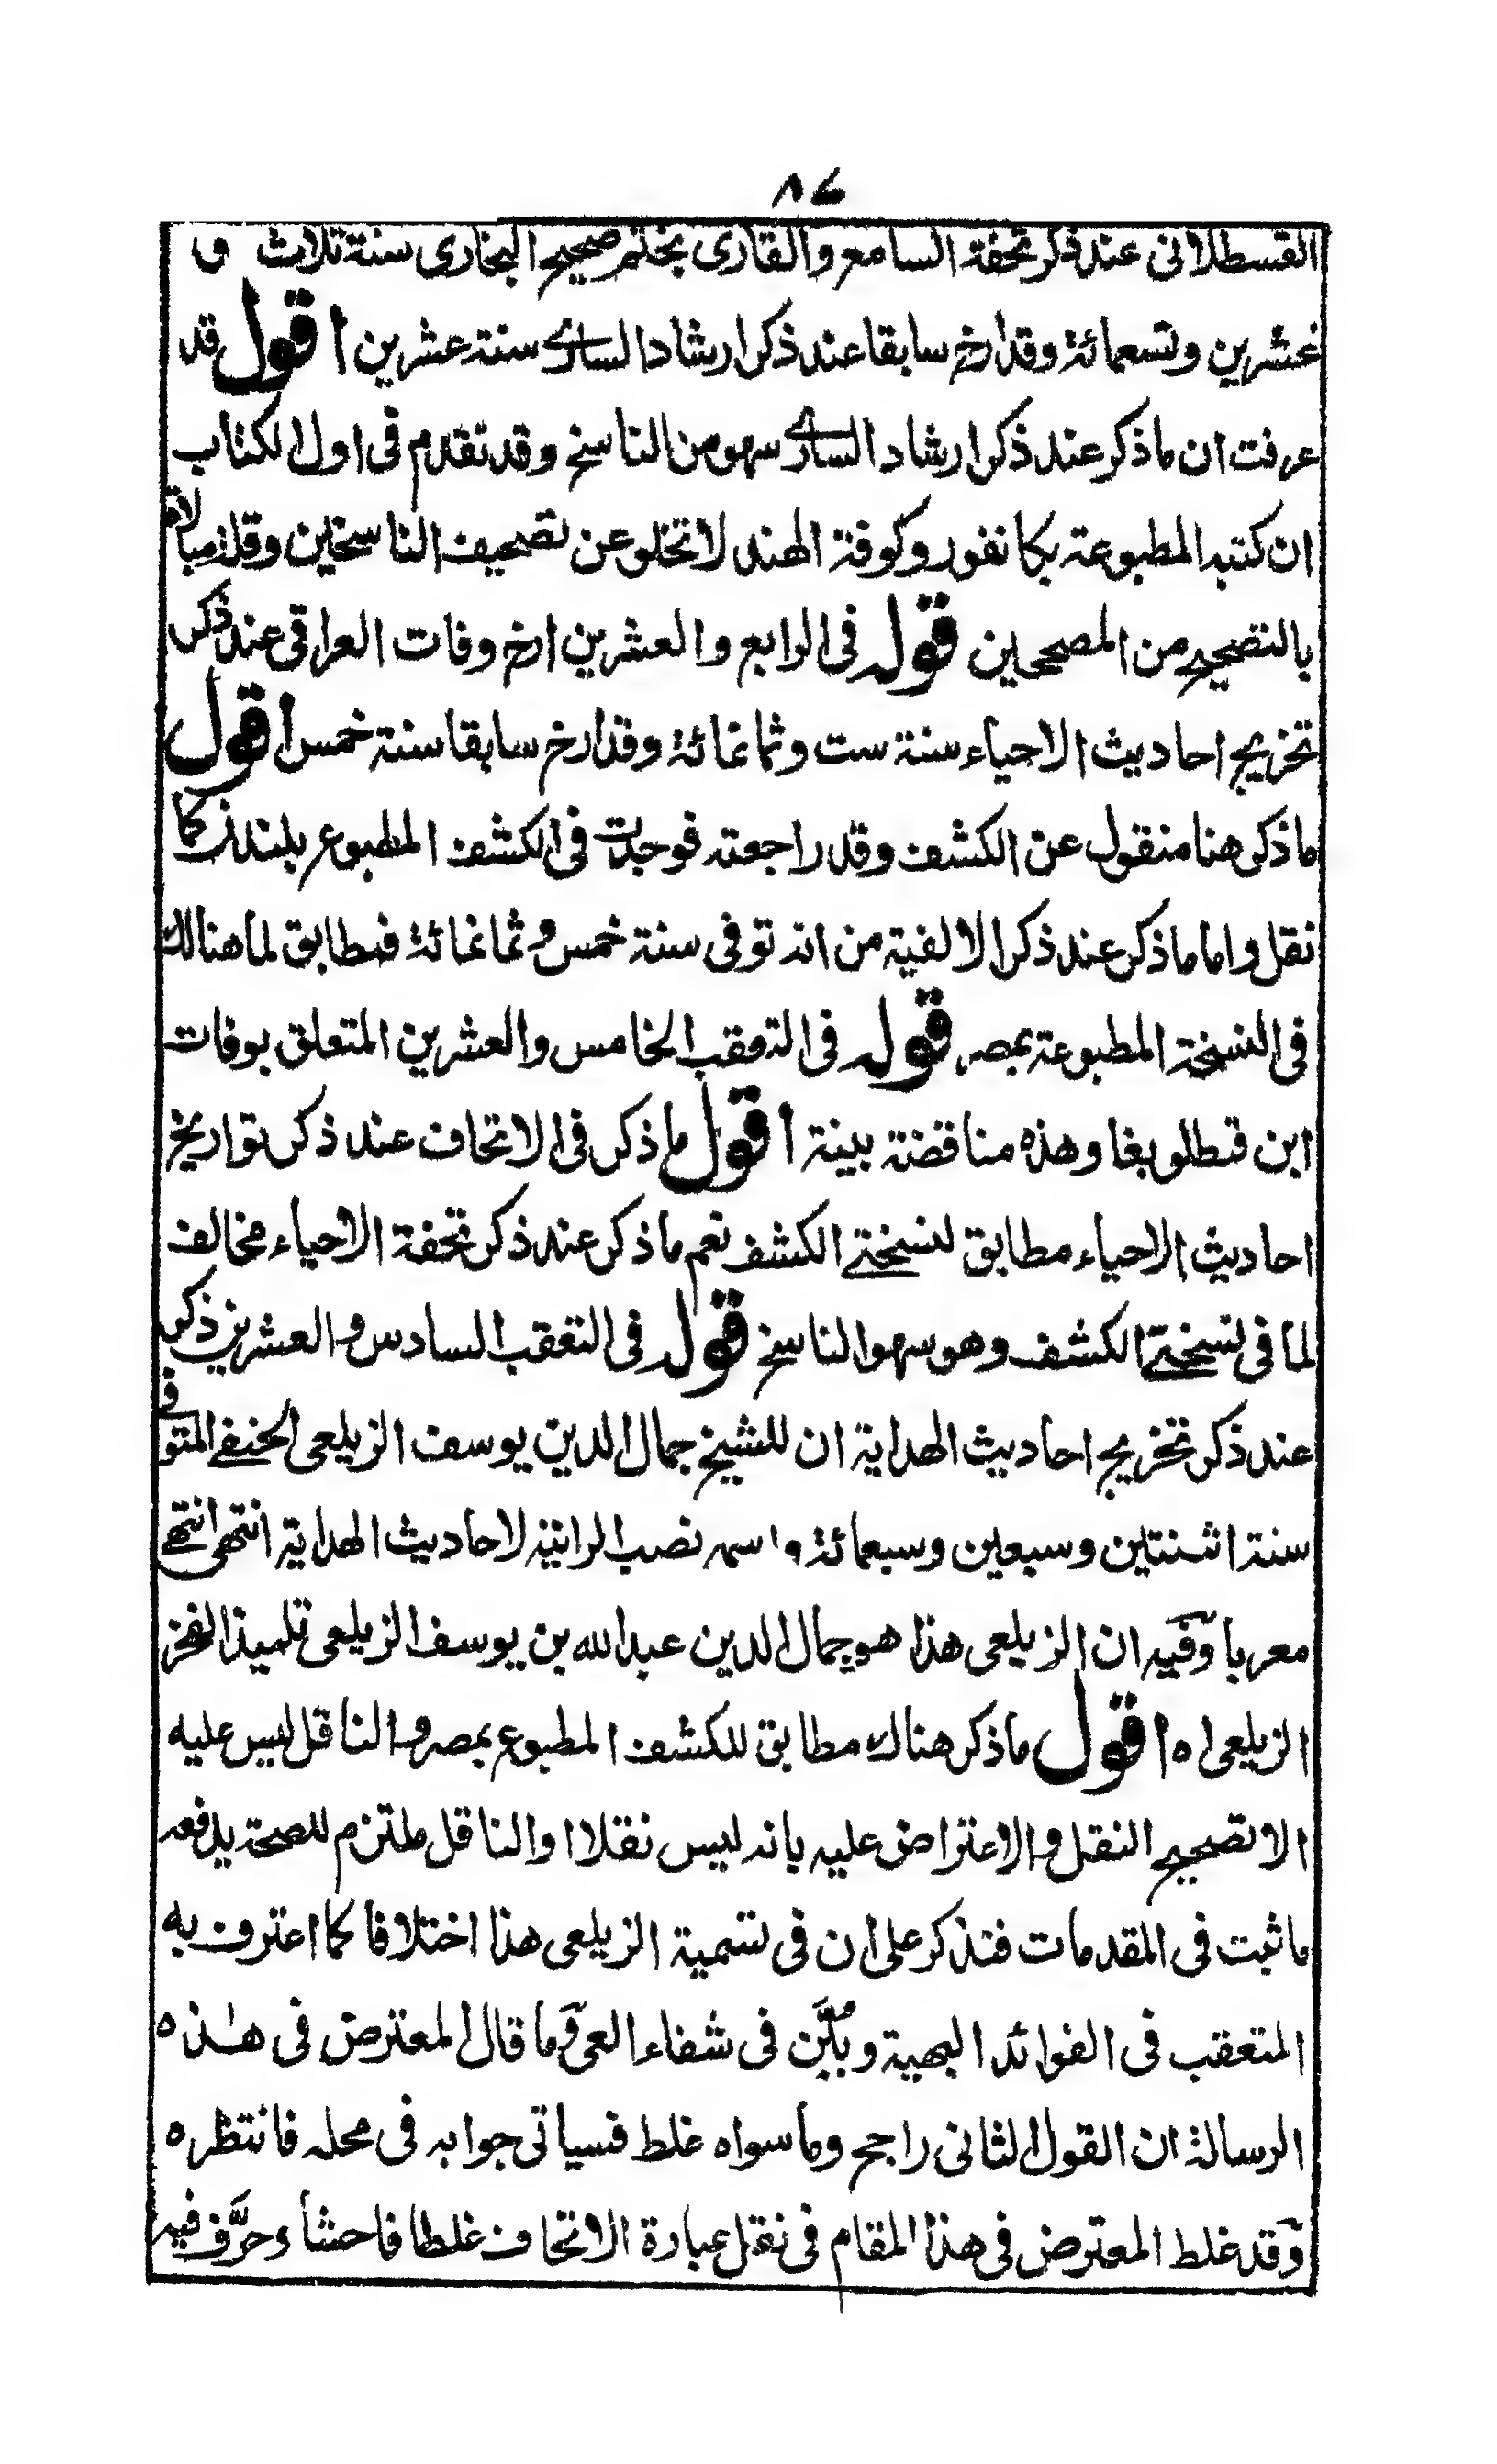 ٨٤
القسطلانی عند ذکر تحفة السامع والقاری بختم صحیح البخاری سنة ثلاث و
عشرین وتسعمائة وقد ارخ سابقا عند ذکر ارشاد الساری سنة عشرین اقول قد
عرفت ان ما ذکر عند ذکر ارشاد الساری سهو من الناسخ وقد تقدم فی اول الکتاب
ان کتبه المطبوعة بکانفور وکوفة الهند لا تخلو عن تصحیف الناسخین وقلة مبالاة
بالتصحیح من المصححین قوله فی الرابع والعشرین ارخ وفات العراقی عند ذکر
تخریج احادیث الاحیاء سنة ست وثمانمائة وقد ارخ سابقا سنة خمس اقول
ما ذکر هنا منقول عن الکشف وقد راجعته فوجدت فی الکشف المطبوع بلندن کما
نقل واما ما ذکر عند ذکر الالفیة من انه توفی سنة خمس وثمانمائة فمطابق لما هنالک
فی النسخة المطبوعة بمصر قوله فی التعقب الخامس والعشرین المتعلق بوفات
ابن قطلوبغا وهذه مناقضة بینة اقول ما ذکر فی الاتحاف عند ذکر تواریخ
احادیث الاحیاء مطابق لنسختی الکشف نعم ما ذکر عند ذکر تحفة الاحیاء مخالف
لما فی نسختی الکشف وهو سهو الناسخ قوله فی التعقب السادس والعشرین ذکر
عند ذکر تخریج احادیث الهدایة ان للشیخ جمال الدین یوسف الزیلعی الحنفی المتوفی
سنة اثنتین وسبعین وسبعمائة واسمه نصب الرایة لاحادیث الهدایة انتهی انتهی
معربا وفیه ان الزیلعی هذا هو جمال الدین عبد الله بن یوسف الزیلعی تلمیذ الفخر
الزیلعی اه اقول ما ذکر هناک مطابق للکشف المطبوع بمصر والناقل لیس علیه
الا تصحیح النقل والاعتراض علیه بانه لیس نقلا او الناقل ملتزم للصحة یدفعه
ما ثبت فی المقدمات فتذکر علی ان فی تسمیة الزیلعی هذا اختلافا کما اعترف به
المتعقب فی الفوائد البهیة وبُیِّن فی شفاء العی وما قال المعترض فی هٰذه
الرسالة ان القول الثانی راجح وما سواه غلط فسیاتی جوابه فی محله فانتظره
وقد غلط المعترض فی هذا المقام فی نقل عبارة الاتحاف غلطا فاحشاء وحرَّف فیه